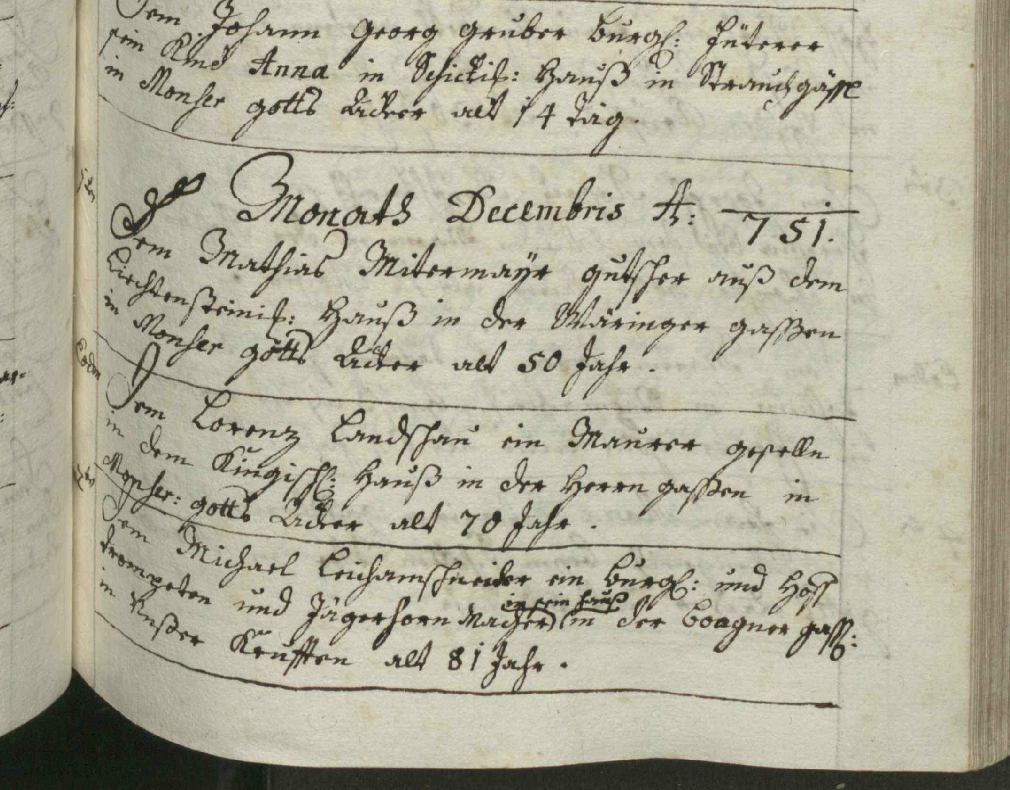 Dem Johann Georg Gruber burgl: Füterer
sein Kind Anna in Schickis: Hauß in Strauchgässl
in Monser gotts Acker alt 14 täg.
Monath Decembris A: 751.
Dem Mathias Mitermayr gutscher auß dem
Liechtensteinis: Hauß in der Wäringer gassen
in Monser gotts Acker alt 50 Jahr.
Eodm
Dem Lorenz Landschau ein Maurer geselle
in dem Kingisch: Hauß in der Herrn gassen in
Monser: gotts Acker alt 70 Jahr.
Dem Michael Leichamschneider ein burgl: und Hoff
trompeten und Jägerhorn Macher in sein Hauß in der Boagner gass:
in Unsser Krufften alt 81 Jahr.